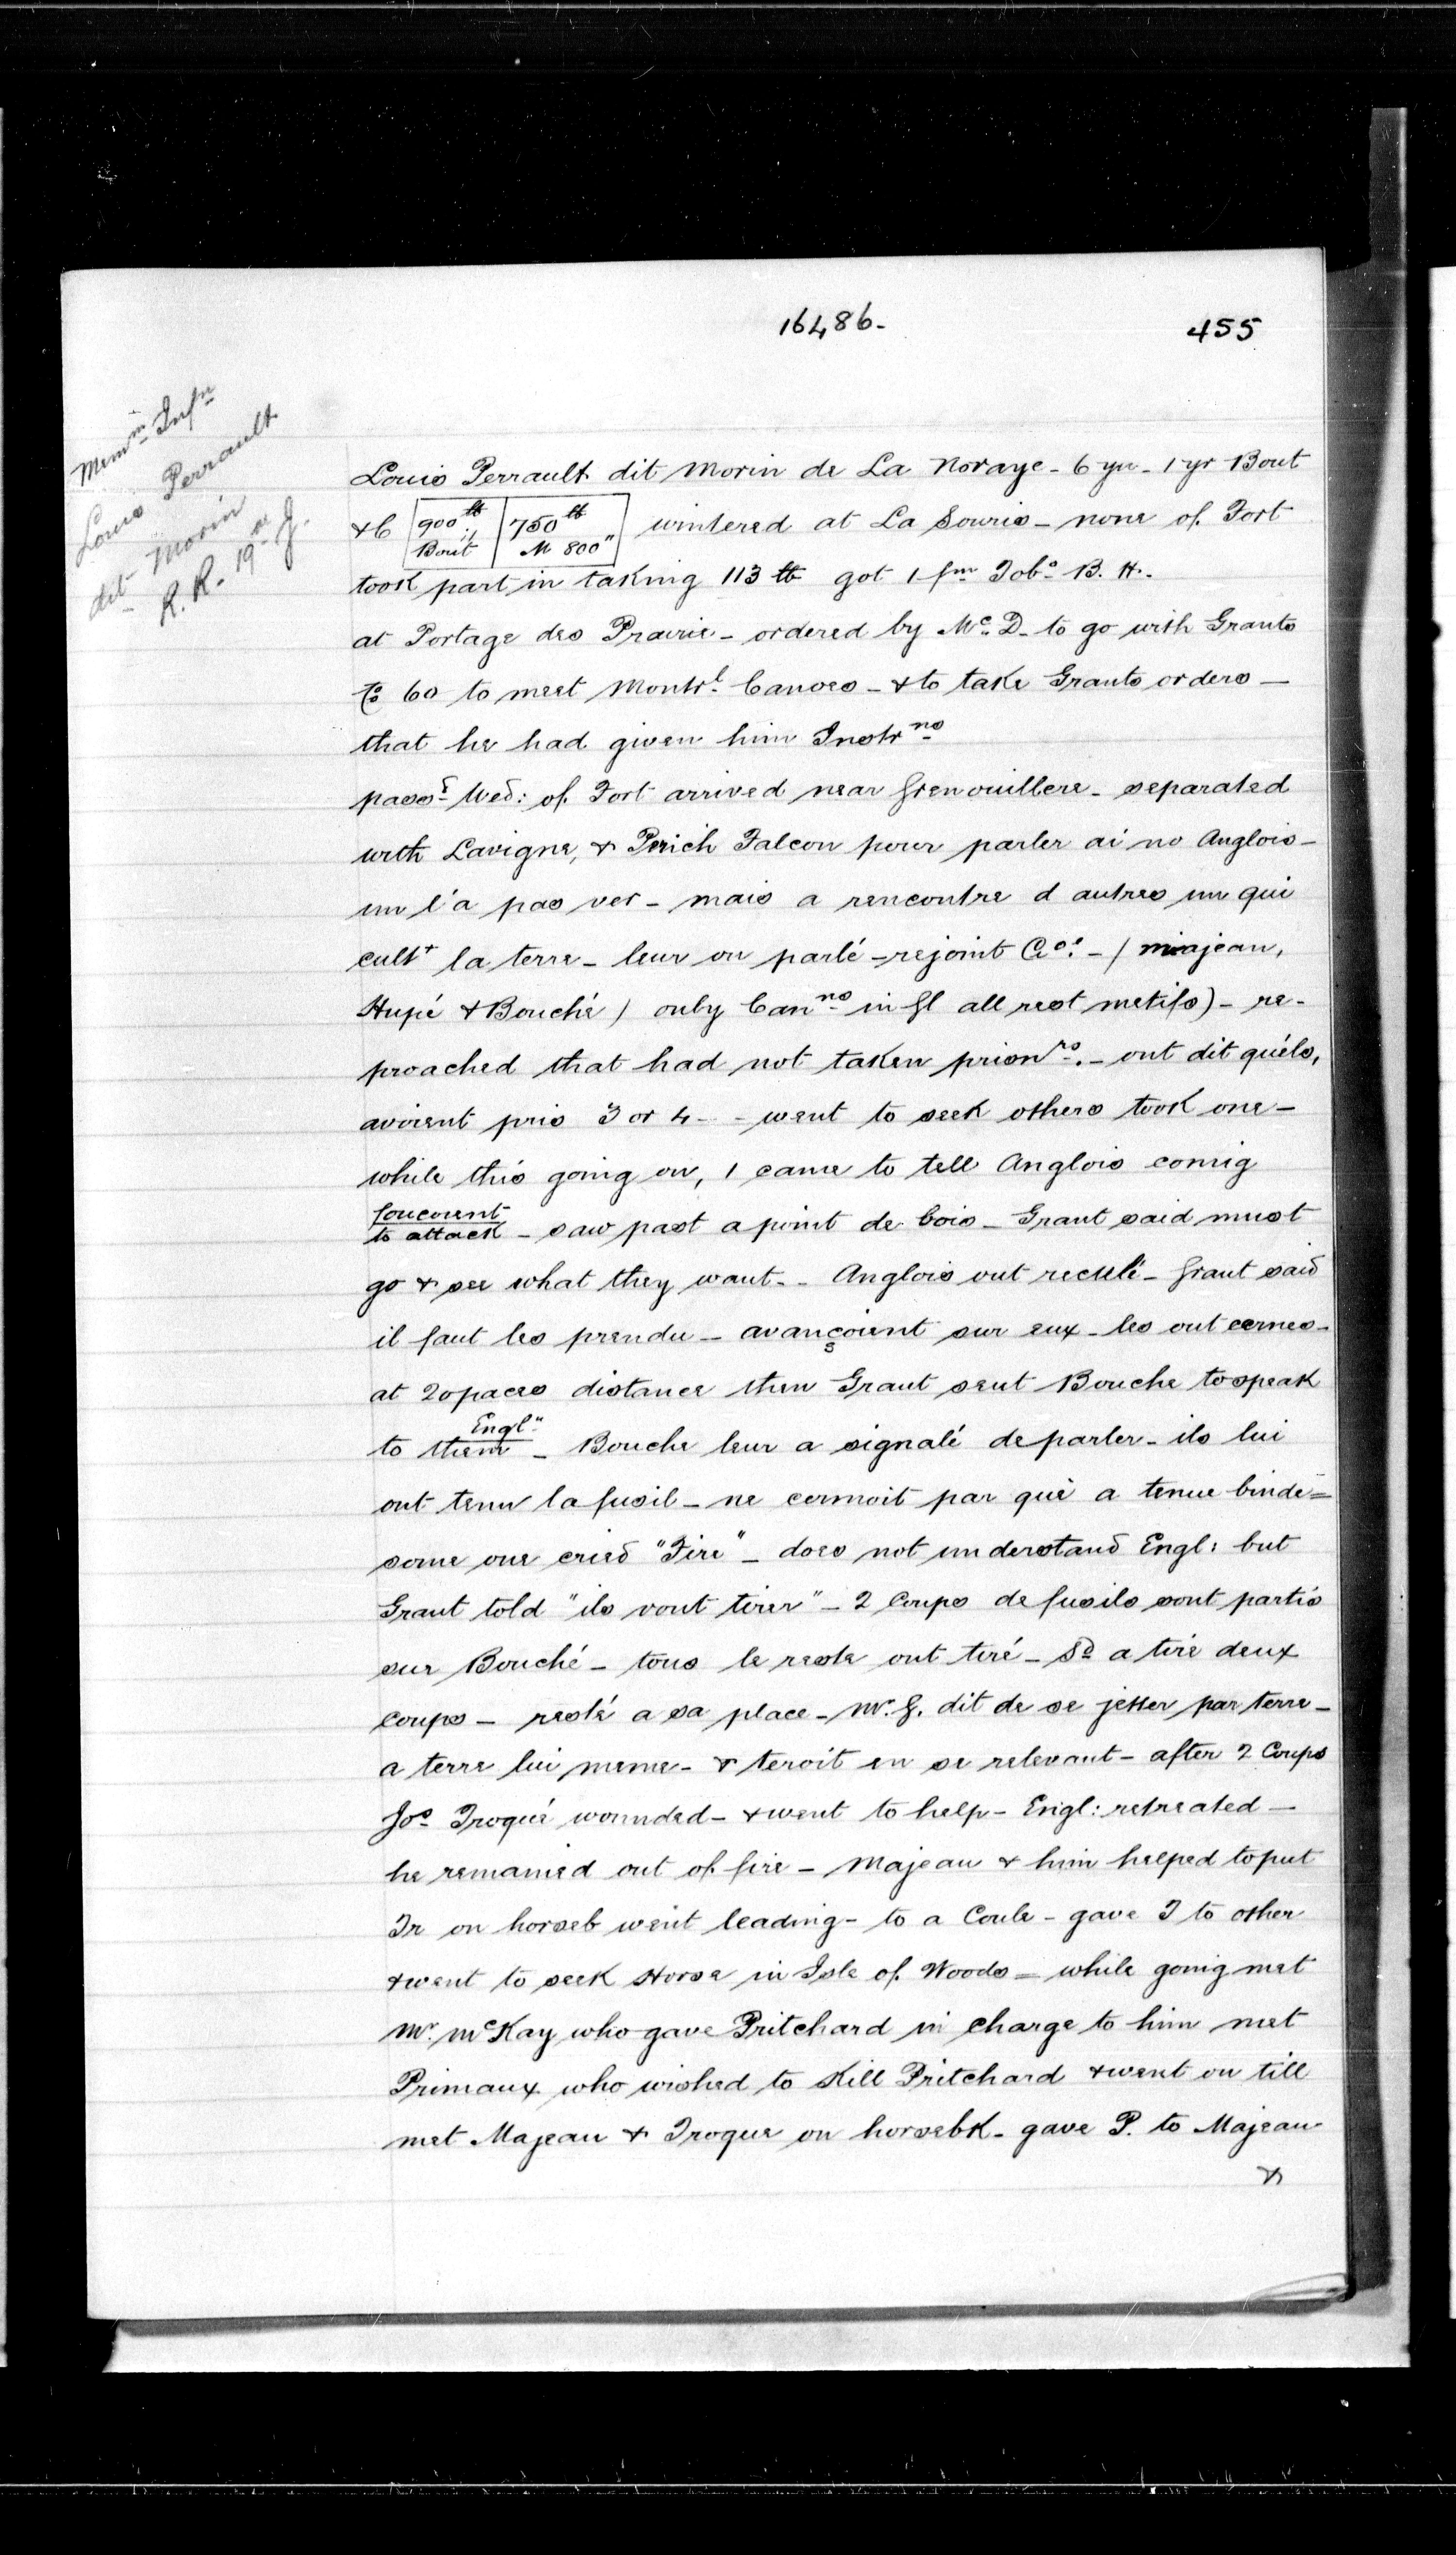 16486-
455
Mem<sup>m</sup> Inf<sup>n</sup>
Louis Perrault
dit Morin
R. R. 19<sup>n</sup> J.
Louis Perrault dit Morin de La Noraye - 6 yn - 1 yr Bout
& C 900 lb Bout 750 lb M 800" wintered at La Souris - none of Fort
took part in taking 113 lb got 1 fm Tob<sup>o</sup> B. H.
at Portage des Prairie - ordered by M<sup>c</sup> D - to go with Grants
60 to meet Montr<sup>l</sup> Canoes - & to take Grants orders -
that he had given him Instr<sup>ns</sup>
pass<sup>d</sup> Wed: of Fort arrived near Grenouillere - separated
with Lavigne, & Perich Falcon pour parler ai no Anglois -
un l'a pas ver - mais a rencontre d autres un qui
cult<sup>t</sup> la terre - leur on parlé - rejoint - / minjean,
Hupé & Bouché / only Can<sup>ns</sup> in Gl all rest metifs) - re-
proached that had not taken prison<sup>rs</sup>. - ont dit qu'éls,
avoient pris 3 or 4 - - went to seek others took one -
while this going on, 1 came to tell Anglois comig
foucount
to attack - saw past a point de bois - Grant said must
go & see what they want - - Anglois ont recullé - Grant said
il faut les prendu - avançoient sur eux - les ont cernes -
at 20 paces distance then Grant sent Bouche to speak
Engl"
to them - Bouche leur a signalé de parler - ils lui
ont tenu la fusil - ne cormoit par qui à tenue binde =
some one cried "Fire" - does not understand Engl: but
Grant told "ils vont tirer" - 2 Coups de fusils sont partis
sur Bouché - tous le reste ont tiré - S<sup>d</sup> a tiré deux
coups - resté a sa place - Mr. G. dit de se jetter par terre -
a terre lui meme - & teroit en se relevant - after 2 Coups
Jos Troqué wounded - & went to help - Engl: retreated -
he remained out of fire - Majeau & him helped to put
Ir on horseb went leading - to a Coule - gave I to other
& went to seek Horse in Isle of Woods = while going met
Mr. McKay who gave Pritchard in charge to him met
Primaux who wished to Kill Pritchard & went on till
met Majeau & Troque on horsebk - gave P. to Majeau
&